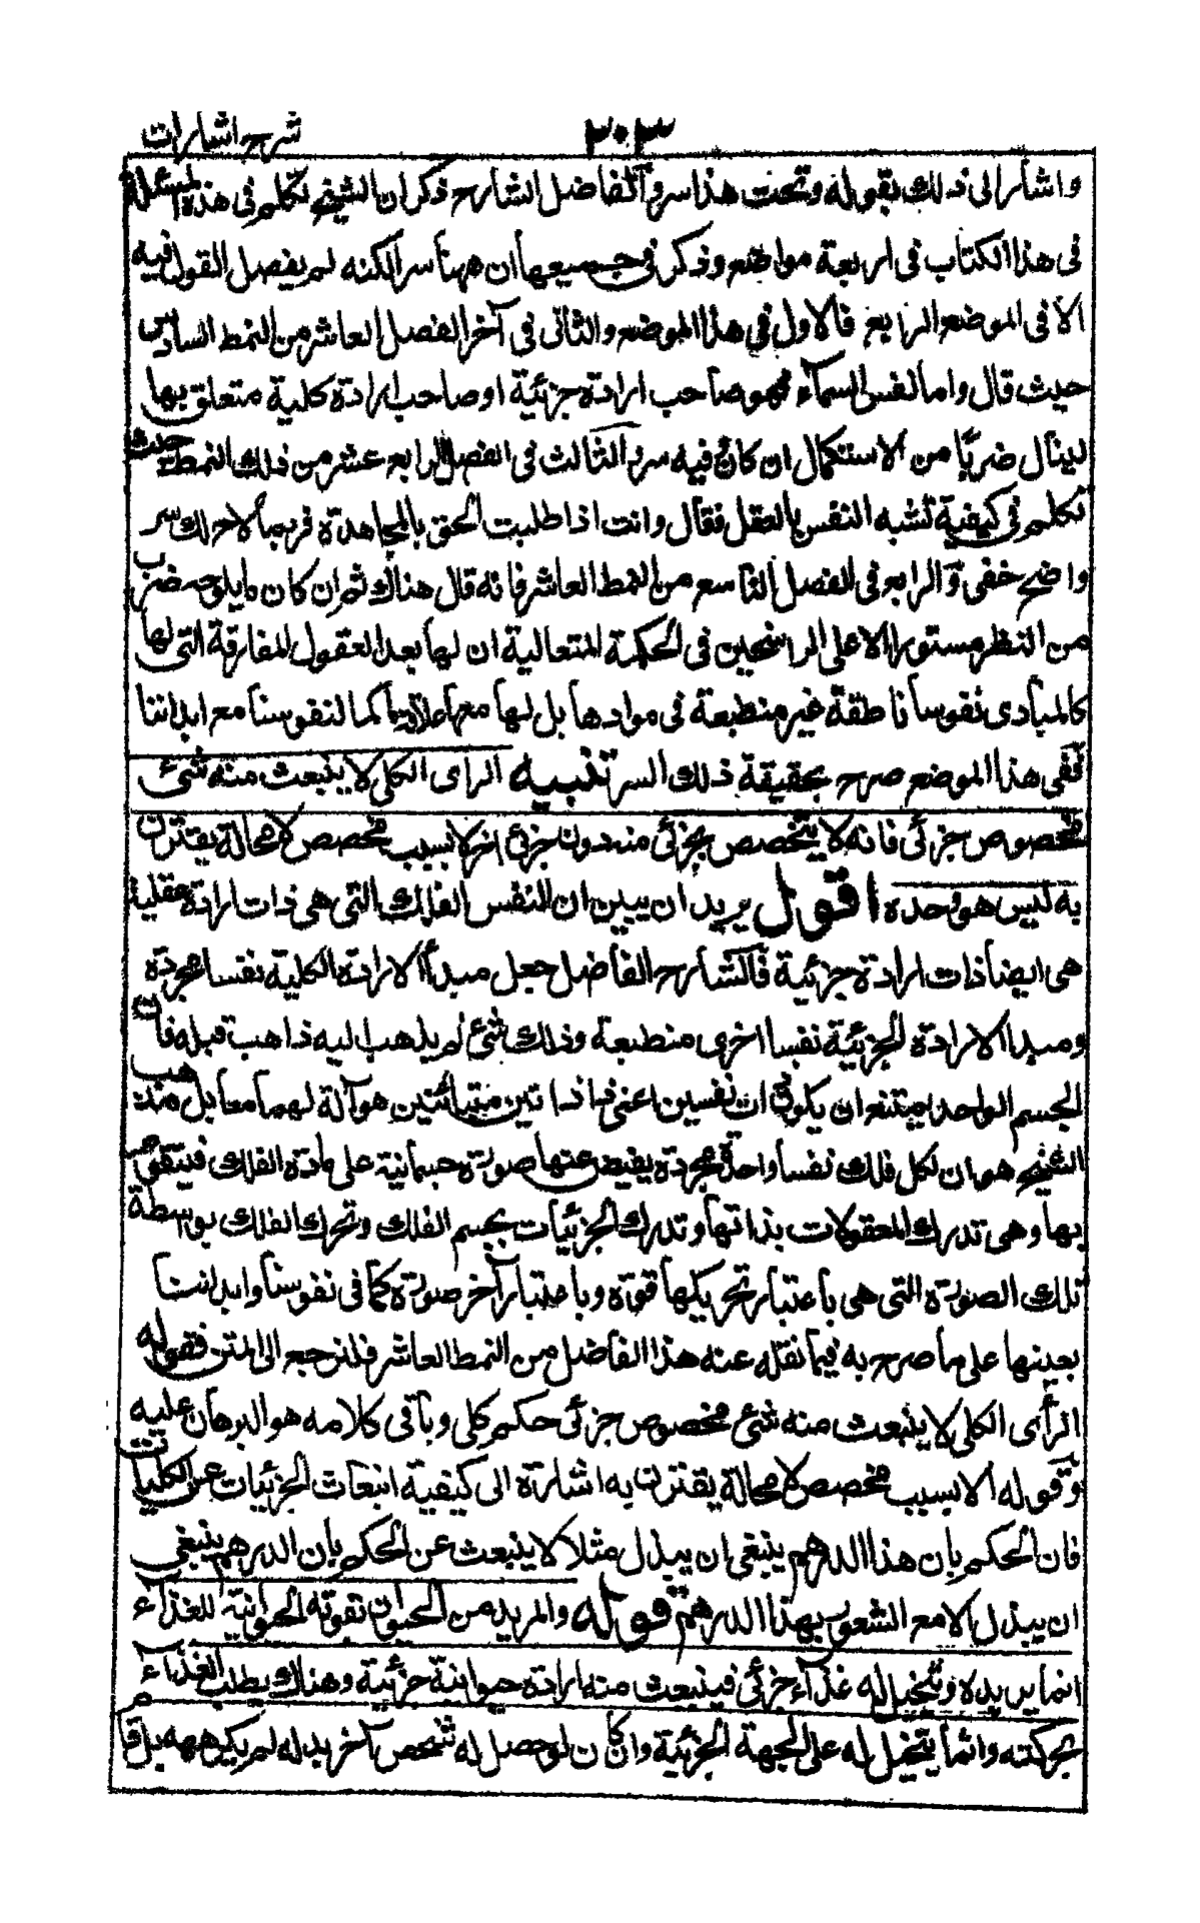 ٣٠٣ شرح اشارات
واشار الى ذلك بقوله وتحت هذا سر والفاضل الشارح ذكر ان الشيخ تكلم فى هذه المسئلة
فى هذا الكتاب فى اربعة مواضع وذكر فى جميعها ان ههنا سرا لكنه لم يفصل القول فيه
الا فى الموضع الرابع فالاول فى هذا الموضع والثانى فى آخر الفصل العاشر من النمط السادس
حيث قال واما نفس السماء فهو صاحب ارادة جزئية او صاحب ارادة كلية متعلق بها
لينال ضربًا من الاستكمال ان كان فيه سر والثالث فى الفصل الرابع عشر من ذلك النمط حيث
تكلم فى كيفية تشبه النفس بالعقل فقال وانت اذا طلبت الحق بالمجاهدة فربما لاح لك سر
واضح خفى والرابع فى الفصل التاسع من النمط العاشر فانه قال هناك ثم ان كان ما يلوحه ضرب
من النظر مستورا الا على الراسخين فى الحكمة المتعالية ان لها بعد العقول المفارقة التى لها
كالمبادى نفوسا ناطقة غير منطبعة فى موادها بل لها معها علاقة ما كما لنفوسنا مع ابداننا
ففى هذا الموضع صرح بحقيقة ذلك السر تنبيه الراى الكلى لا ينبعث منه شىء
مخصوص جزئى فانه لا يتخصص بجزئى منه دون جزئى اخر الا بسبب مخصص لا محالة يقترن
به ليس هو وحده اقول يريد ان يبين ان النفس الفلك التى هى ذات ارادة عقلية
هى ايضا ذات ارادة جزئية فالشارح الفاضل جعل مبدأ الارادة الكلية نفسا مجردة
ومبدا الارادة الجزئية نفسا اخرى منطبعة وذلك شئ لم يذهب اليه ذاهب قبله فان
الجسم الواحد يمتنع ان يكون ذات نفسين اعنى ذا ذاتين متباينتين هو آلة لهما معا بل مذهب
الشيخ هو ان لكل فلك نفسا واحدة مجردة يفيض عنها صورة جسمانية على مادة الفلك فيتقوم
بها وهى تدرك المعقولات بذاتها وتدرك الجزئيات بجسم الفلك وتحرك الفلك بواسطة
تلك الصورة التى هى باعتبار تحريكها قوة وباعتبار آخر صورة كما فى نفوسنا وابداننا
بعينها على ما صرح به فيما نقله عنه هذا الفاضل من النمط العاشر فلنرجع الى المتن فقوله
الرأى الكلى لا ينبعث منه شئ مخصوص جزئى حكم كلى وباقى كلامه هو البرهان عليه
وقوله الا بسبب مخصص لا محالة يقترن به اشارة الى كيفية انبعاث الجزئيات عن الكليات
فان الحكم بان هذا الدرهم ينبغى ان يبذل مثلا لا ينبعث عن الحكم بان الدرهم ينبغى
ان يبذل الا مع الشعور بهذا الدرهم قوله والمريد من الحيوان بقوته الحيوانية للغذاء
انما يريده وتخيل له غذاء جزئى فينبعث منه ارادة حيوانية جزئية وهناك يطلب الغذاء
بحركته وانما يتخيل له على الجهة الجزئية وان كان لو حصل له شخص آخر بدله لم يكرهه بل قا